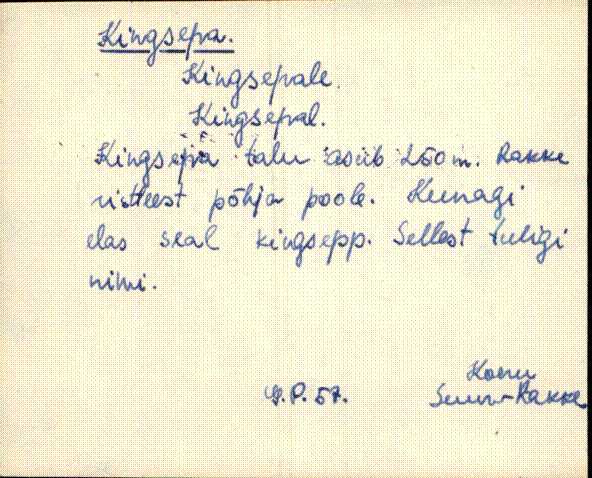 Kingsepa.
Kingsepale.
Kingsepal.
Kingsepa talu asub 250 m. Rakke
ristteest põhja poole. Kunagi
elas seal kingsepp. Sellest tuligi
nimi.
Koeru
57. Suur-Rakke